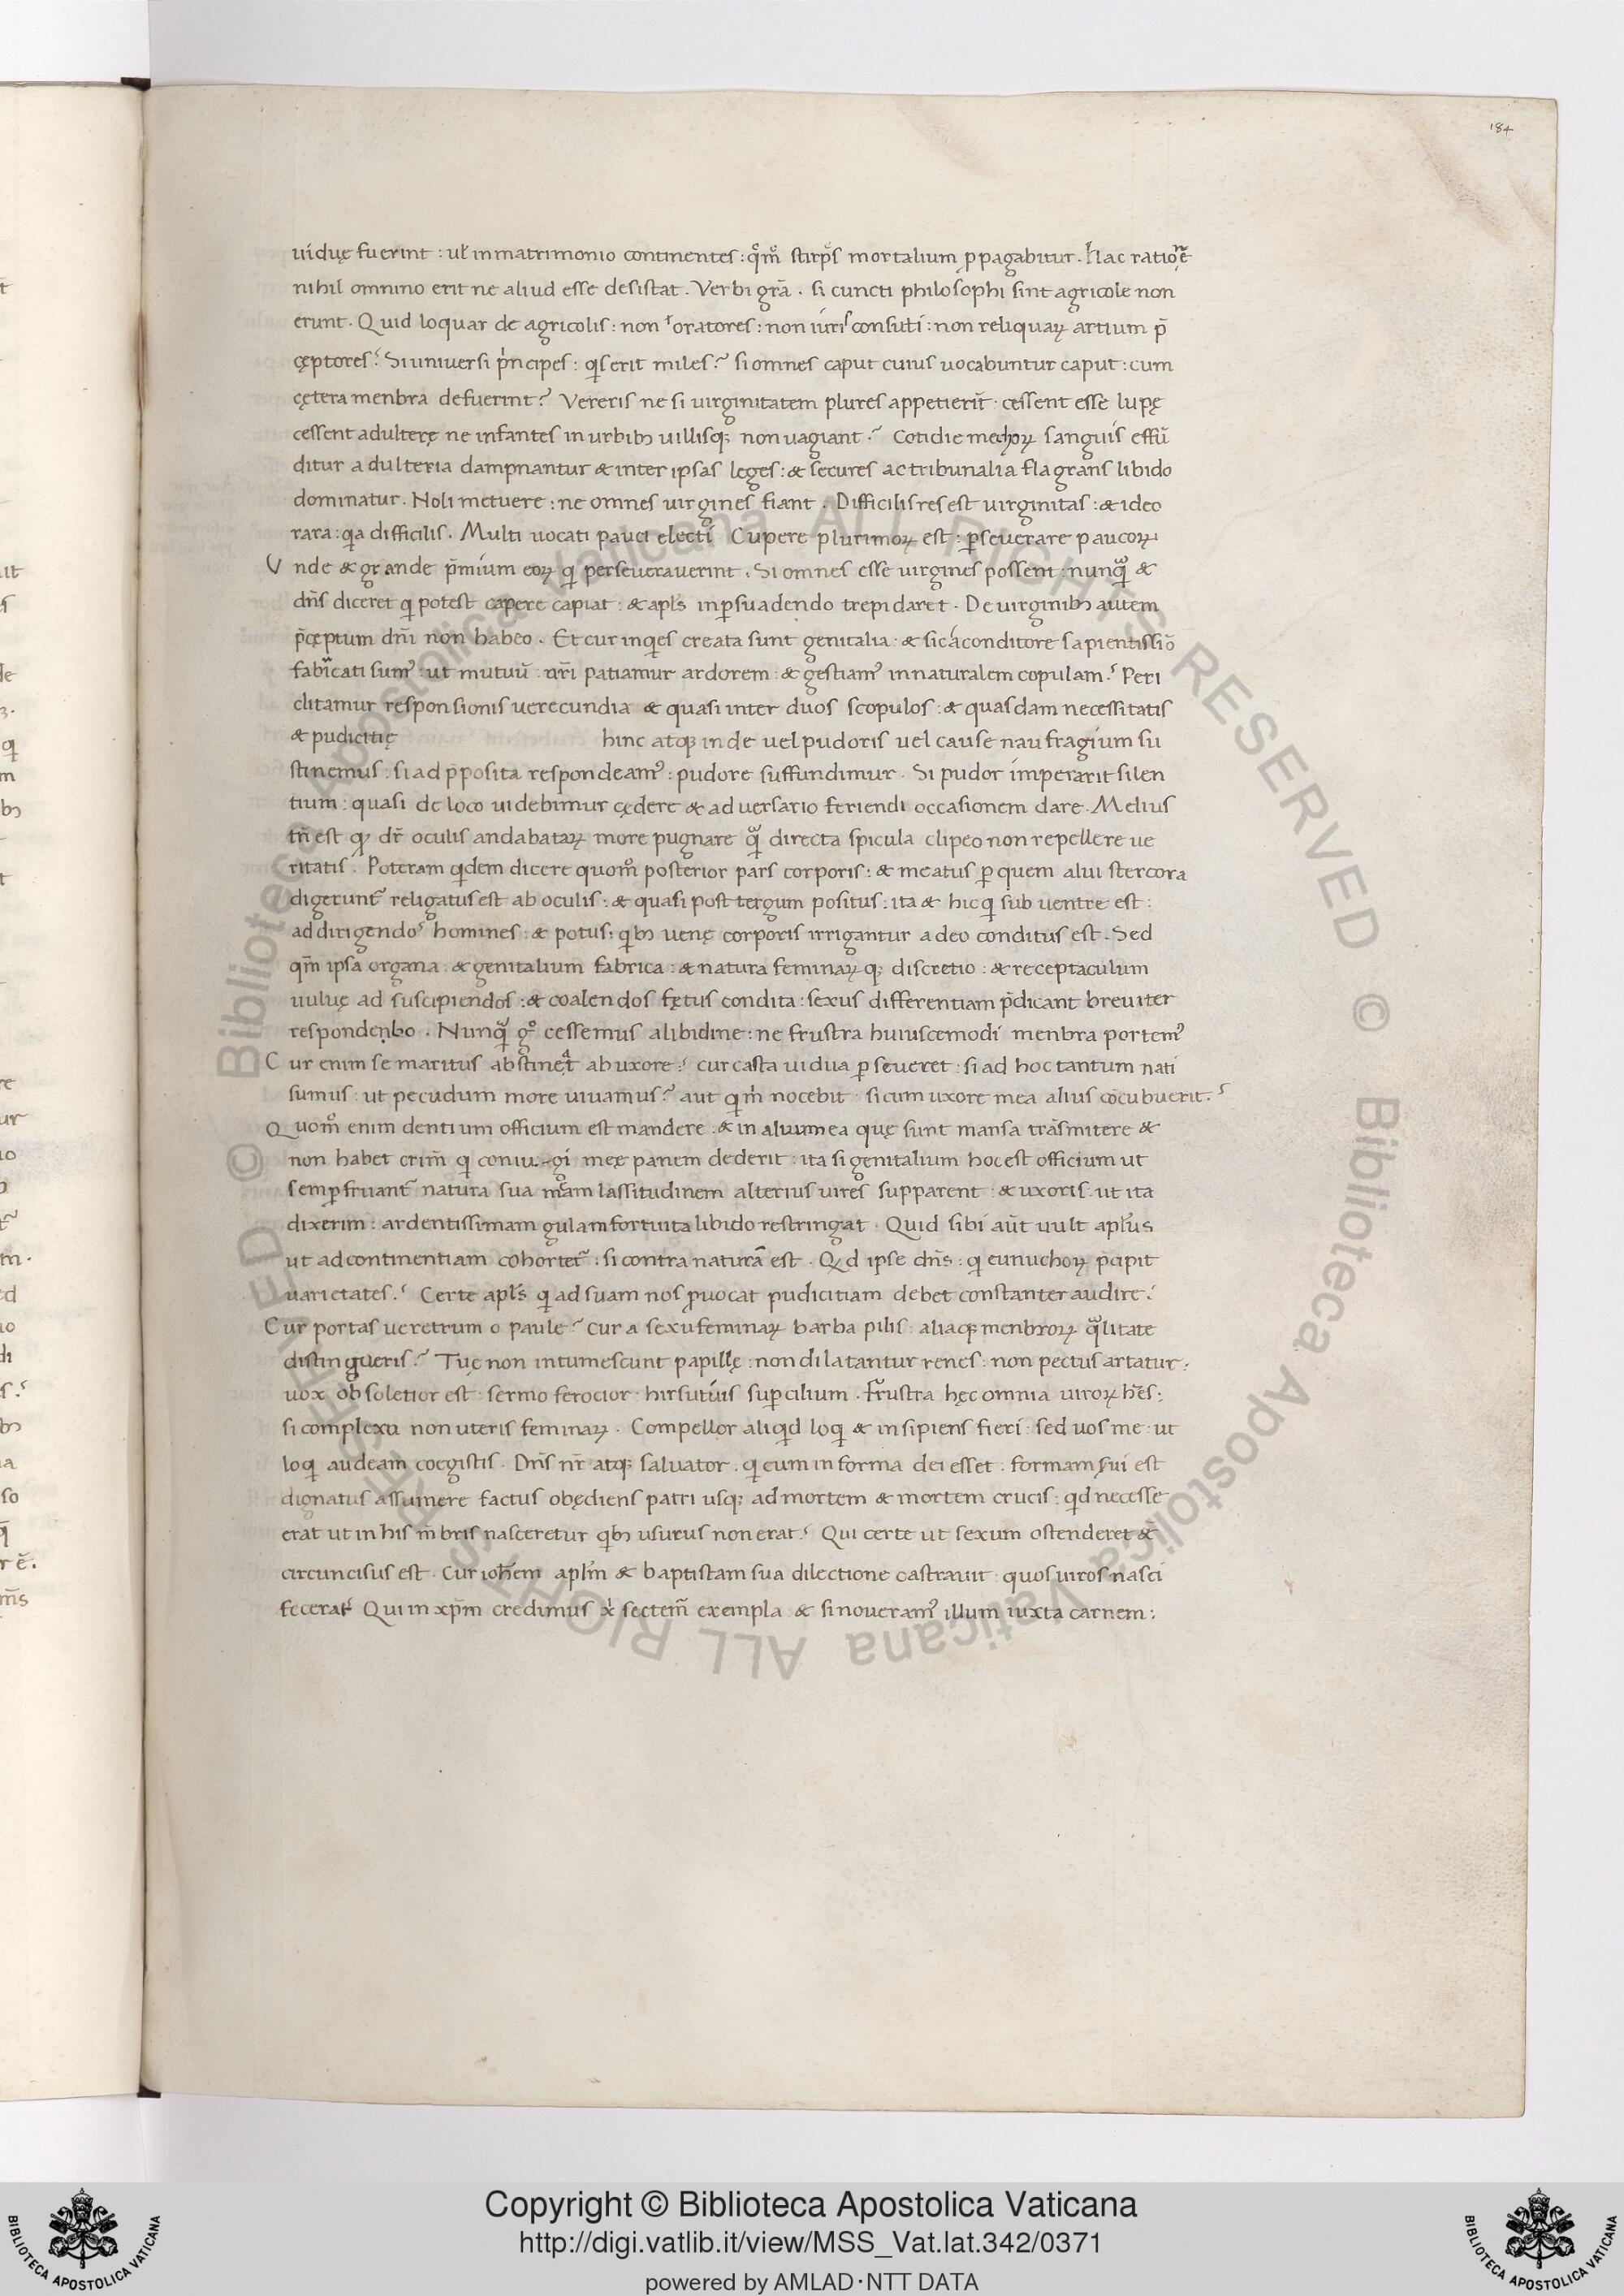 184
uiduę fuerint : uł in matrimonio continentes : qͦm̊ stirp̄s mortalium ꝓpagabitur . Hac ratione
nihil omnino erit ne aliud esse desistat . Verbi gr̄a . si cuncti philosophi sint agricole non
erunt . Quid loquar de agricolis : non oratores : non iuris consulti : non reliquaꝝ artium p̄
ceptores ? Si uniuersi pͥncipes : qͥs erit miles ? si omnes caput cuius uocabuntur caput : cum
cętera menbra defuerint ? Vereris ne si uirginitatem plures appetierīt . cessent esse lupę
cessent adulterę ne infantes in urbibꝫ uillisqꝫ non uagiant ? Cotidie mechoꝝ sanguis effū
ditur adulteria dampnantur & inter ipsas leges : & secures ac tribunalia flagrans libido
dominatur . Noli metuere : ne omnes uirgines fiant . Difficilis res est uirginitas : & ideo
rara : qͥa difficilis . Multi uocati pauci electi Cupere plurimoꝝ est : ꝑseuerare paucoꝝ
Vnde & grande p̄mium eoꝝ qͥ perseuerauerint . Si omnes esse uirgines possent : nunqᷓ &
dn̄s diceret qͥ potest capere capiat : & apl̄s in ꝑsuadendo trepidaret . De uirginibꝫ autem
p̄ceptum dn̄i non habeo . Et cur inqͥes creata sunt genitalia : & sic a conditore sapientissīo
fabricati sumꝰ : ut mutuū nr̄i patiamur ardorem : & gestiamꝰ in naturalem copulam ? Peri
clitamur responsionis uerecundia & quasi inter duos scopulos : & quasdam necessitatis
& pudicitię hinc atqꝫ inde uel pudoris uel cause naufragium su
stinemus : si ad ꝓposita respondeamꝰ : pudore suffundimur . Si pudor imperarit silen
tium : quasi de loco uidebimur cędere & aduersario feriendi occasionem dare . Melius
tn̄ est qͥ dr̄ oculis andabataꝝ more pugnare qᷓ directa spicula clipeo non repellere ue
ritatis . Poteram qͥdem dicere quom̊ posterior pars corporis : & meatus ꝑ quem alui stercora
digerunt᷑ religatus est ab oculis : & quasi post tergum positus : ita & hic qͥ sub uentre est :
ad dirigendos homines : & potus : qͥbꝫ uenę corporis irrigantur a deo conditus est . Sed
qm̄ ipsa organa : & genitalium fabrica : & natura feminaꝝqꝫ discretio : & receptaculum
uuluę ad suscipiendos : & coalendos fętus condita : sexus differentiam p̄dicant breuiter
respondenbo . Nunqᷓ gͦ cessemus a libidine : ne frustra huiuscemodi menbra portemꝰ
Cur enim se maritus abstineat ab uxore ? cur casta uidua ꝑseueret : si ad hoc tantum nati
sumus : ut pecudum more uiuamus ? aut qͥ m̍ nocebit : si cum uxore mea alius cōcubuerit ?
Quom̊ enim dentium officium est mandere : & in aluum ea quę sunt mansa trāsmitere &
non habet crim̄ qͥ coniu-gi meę panem dederit : ita si genitalium hoc est officium ut
semꝑ fruant᷑ natura sua meam lassitudinem alterius uires supparent : & uxoris : ut ita
dixerim : ardentissimam gulam fortuita libido restringat . Quid sibi aūt uult apl̄us
ut ad continentiam cohortet᷑ : si contra naturā est . Qͥd ipse dn̄s : qͥ eunuchoꝝ p̄cipit
uarietates ? Certe apl̄s qͥ ad suam nos ꝓuocat pudicitiam debet constanter audire :
Cur portas ueretrum o paule ? cur a sexu feminaꝝ barba pilis : aliaqꝫ menbroꝝ qᷓlitate
distingueris ? Tuę non intumescunt papillę : non dilatantur renes : non pectus artatur :
uox obsoletior est : sermo ferocior : hirsutius suꝑcilium . Frustra hęc omnia uiroꝝ hēs :
si complexu non uteris feminaꝝ . Compellor aliqͥd loqͥ & insipiens fieri : sed uos me : ut
loqͥ audeam coegistis . Dn̄s nr̄ atqꝫ saluator . qͥ cum in forma dei esset : formam sui est
dignatus assumere factus obędiens patri usqꝫ ad mortem & mortem crucis : qͥd necesse
erat ut in his m̄bris nasceretur qͥbꝫ usurus non erat ? Qui certe ut sexum ostenderet &
circuncisus est . Cur ioh̄em apl̄m & baptistam sua dilectione castrauit : quos uiros nasci
fecerat ? Qui in xp̄m credimus xp̄i sectem᷑ exempla & si noueramꝰ illum iuxta carnem :
Copyright © Biblioteca Apostolica Vaticana
http://digi.vatlib.it/view/MSS_Vat.lat.342/0371
powered by AMLAD·NTT DATA